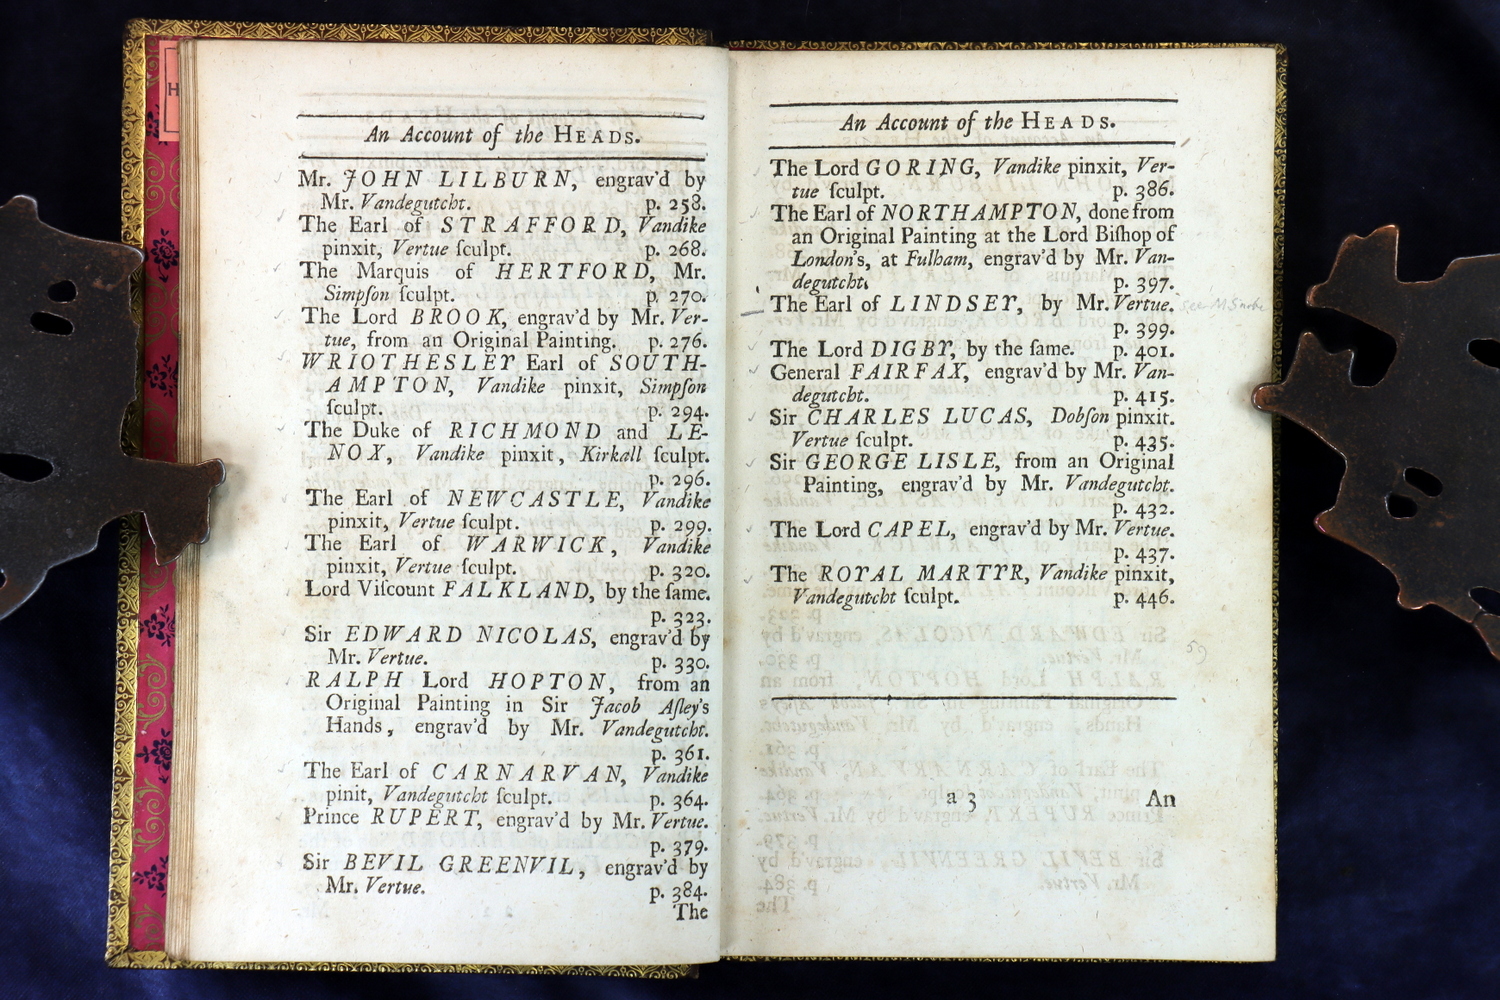 H
An Account of the HEADS.
Mr. JOHN LILBURN, engrav'd by
Mr. Vandegutcht. p. 258.
The Earl of STRAFFORD, Vandike
pinxit, Vertue ſculpt. p. 268.
The Marquis of HERTFORD, Mr.
Simpſon ſculpt. p. 270.
The Lord BROOK, engrav'd by Mr. Ver-
tue, from an Original Painting. p. 276.
WRIOTHESLEY Earl of SOUTH-
AMPTON, Vandike pinxit, Simpſon
ſculpt. p. 294.
The Duke of RICHMOND and LE-
NOX, Vandike pinxit, Kirkall ſculpt.
p. 296.
The Earl of NEWCASTLE, Vandike
pinxit, Vertue ſculpt. p. 299.
The Earl of WARWICK, Vandike
pinxit, Vertue ſculpt. p. 320.
Lord Viſcount FALKLAND, by the ſame.
p. 323.
Sir EDWARD NICOLAS, engrav'd by
Mr. Vertue. p. 330.
RALPH Lord HOPTON, from an
Original Painting in Sir Jacob Aſley's
Hands, engrav'd by Mr. Vandegutcht.
p. 361.
The Earl of CARNARVAN, Vandike
pinit, Vandegutcht ſculpt. p. 364.
Prince RUPERT, engrav'd by Mr. Vertue.
p. 379.
Sir BEVIL GREENVIL, engrav'd by
Mr. Vertue. p. 384.
The
An Account of the HEADS.
The Lord GORING, Vandike pinxit, Ver-
tue ſculpt. p. 386.
The Earl of NORTHAMPTON, done from
an Original Painting at the Lord Biſhop of
London's, at Fulham, engrav'd by Mr. Van-
degutcht. p. 397.
The Earl of LINDSEY, by Mr. Vertue. see MS note
p. 399.
The Lord DIGBY, by the ſame. p. 401.
General FAIRFAX, engrav'd by Mr. Van-
degutcht. p. 415.
Sir CHARLES LUCAS, Dobſon pinxit.
Vertue ſculpt. p. 435.
Sir GEORGE LISLE, from an Original
Painting, engrav'd by Mr. Vandegutcht.
p. 432.
The Lord CAPEL, engrav'd by Mr. Vertue.
p. 437.
The ROYAL MARTYR, Vandike pinxit,
Vandegutcht ſculpt. p. 446.
59
a 3 An